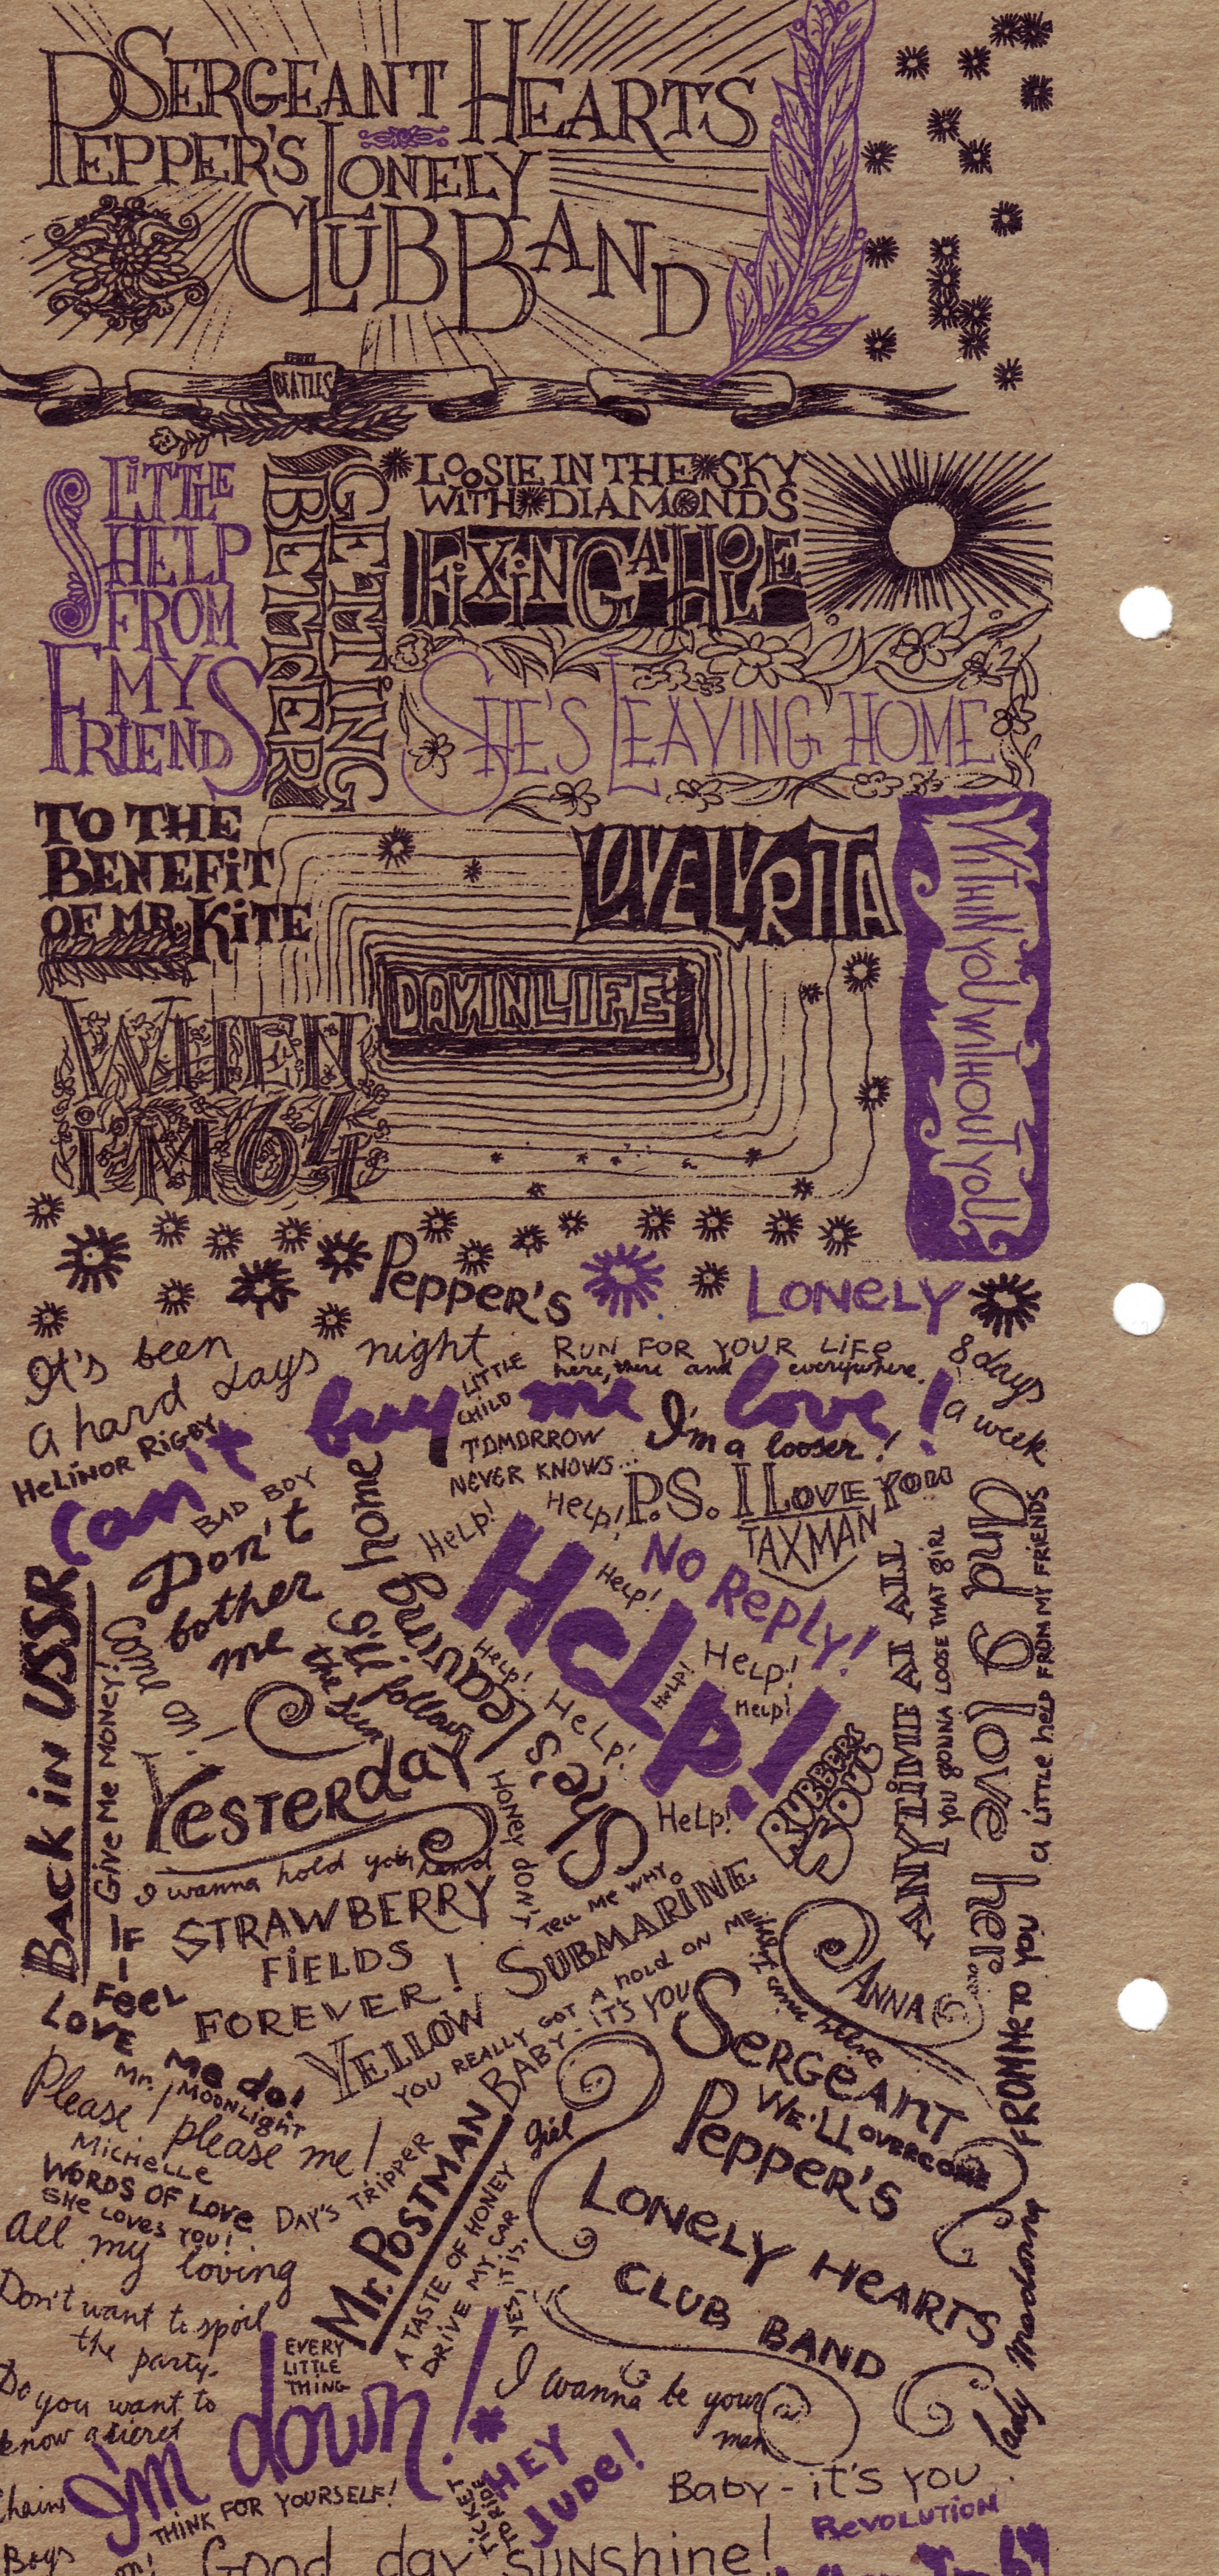 SERGEANT
PEPPER'S LONELY
HEARTS
CLUB BAND
BEATLES
LITTLE
HELP
FROM
MY
FRIENDS
GETTING
BETTER
LOOSIE IN THE SKY
WITH DIAMONDS
FIXING A HOLE
SHE'S LEAVING HOME
TO THE
BENEFIT
OF MR. KITE
DAY IN LIFE
WITHIN YOU WITHOUT YOU
WHEN
i'M 64
Pepper's
LONELY
It's been
a hard days night
RUN FOR YOUR LiFe
here, there and everywhere.
8 days
a week
LITTLE
CHILD
can't buy me love!
HeLiNOR RiGBY
TOMORROW
NEVER KNOWS...
I'm a looser!
BAD BOY
P.S. I LOVE YOU
TAXMAN
Don't
bother
me
HeLp!
HeLp!
HeLp!
HeLp!
NO RePLY!
HeLp!
HeLp!
HeLp!
HeLp!
HeLp!
HeLp!
She's leaving home
i'll follow
the sun
BACK iN USSR
GiVe Me MONeY!
YESTERDAY
RUBBER
SOUL
ANYTiME AT ALL
YOU gONNA LOOSE THAT giRL
And I love her
a LiTTLe heLp FROM MY FRieNDS
i wanna hold your hand
HONEY DON'T
TELL ME WHY
STRAWBERRY
FiELDS
FOREVER!
YELLOW SUBMARINE
YOU REALLY GOT A HOLD ON ME
BABY - IT'S YOU
ANNA
IF
I
FeeL
LOVE
Me do!
Mr. MOONLigHT
Please please me!
MiCHeLLe
WORDS OF LOVe
SHe LOVeS YOU!
All my loving
DAY'S TRiPPER
Mr. POSTMAN
A TASTE OF HONEY
DRiVE MY CAR
YES iT iS.
girl
SeRGeANT
Pepper's
We'LL OVeRCOMe
LONELY HEARTS
CLUB BAND
FROM Me TO YOU
lady Madonna
Don't want to spoil
the party.
EVERY
LiTTLE
THiNG
Do you want to
know a secret
I'm down!
I wanna be your
man
HEY
JUDe!
Chains
THINK FOR YOURSELF!
TiCKeT
TO RiDe
Baby - it's YOU
ReVOLUTiON
Boys
Good day sunshine!